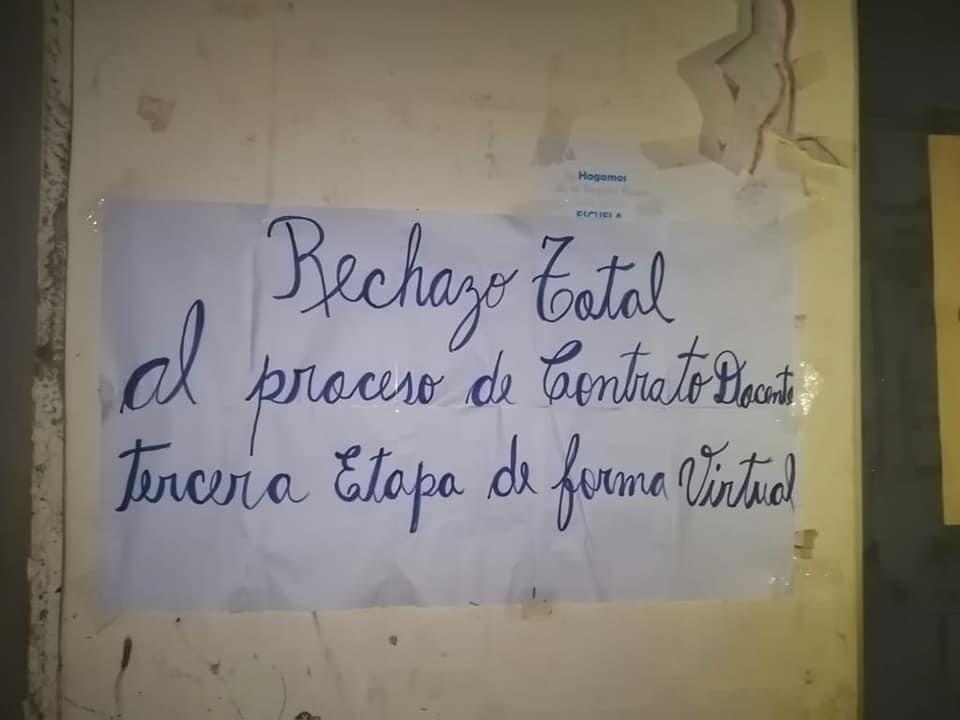 Hagamos
ESCUELA
Rechazo Total
al proceso de Contrato Docente
tercera Etapa de forma Virtual